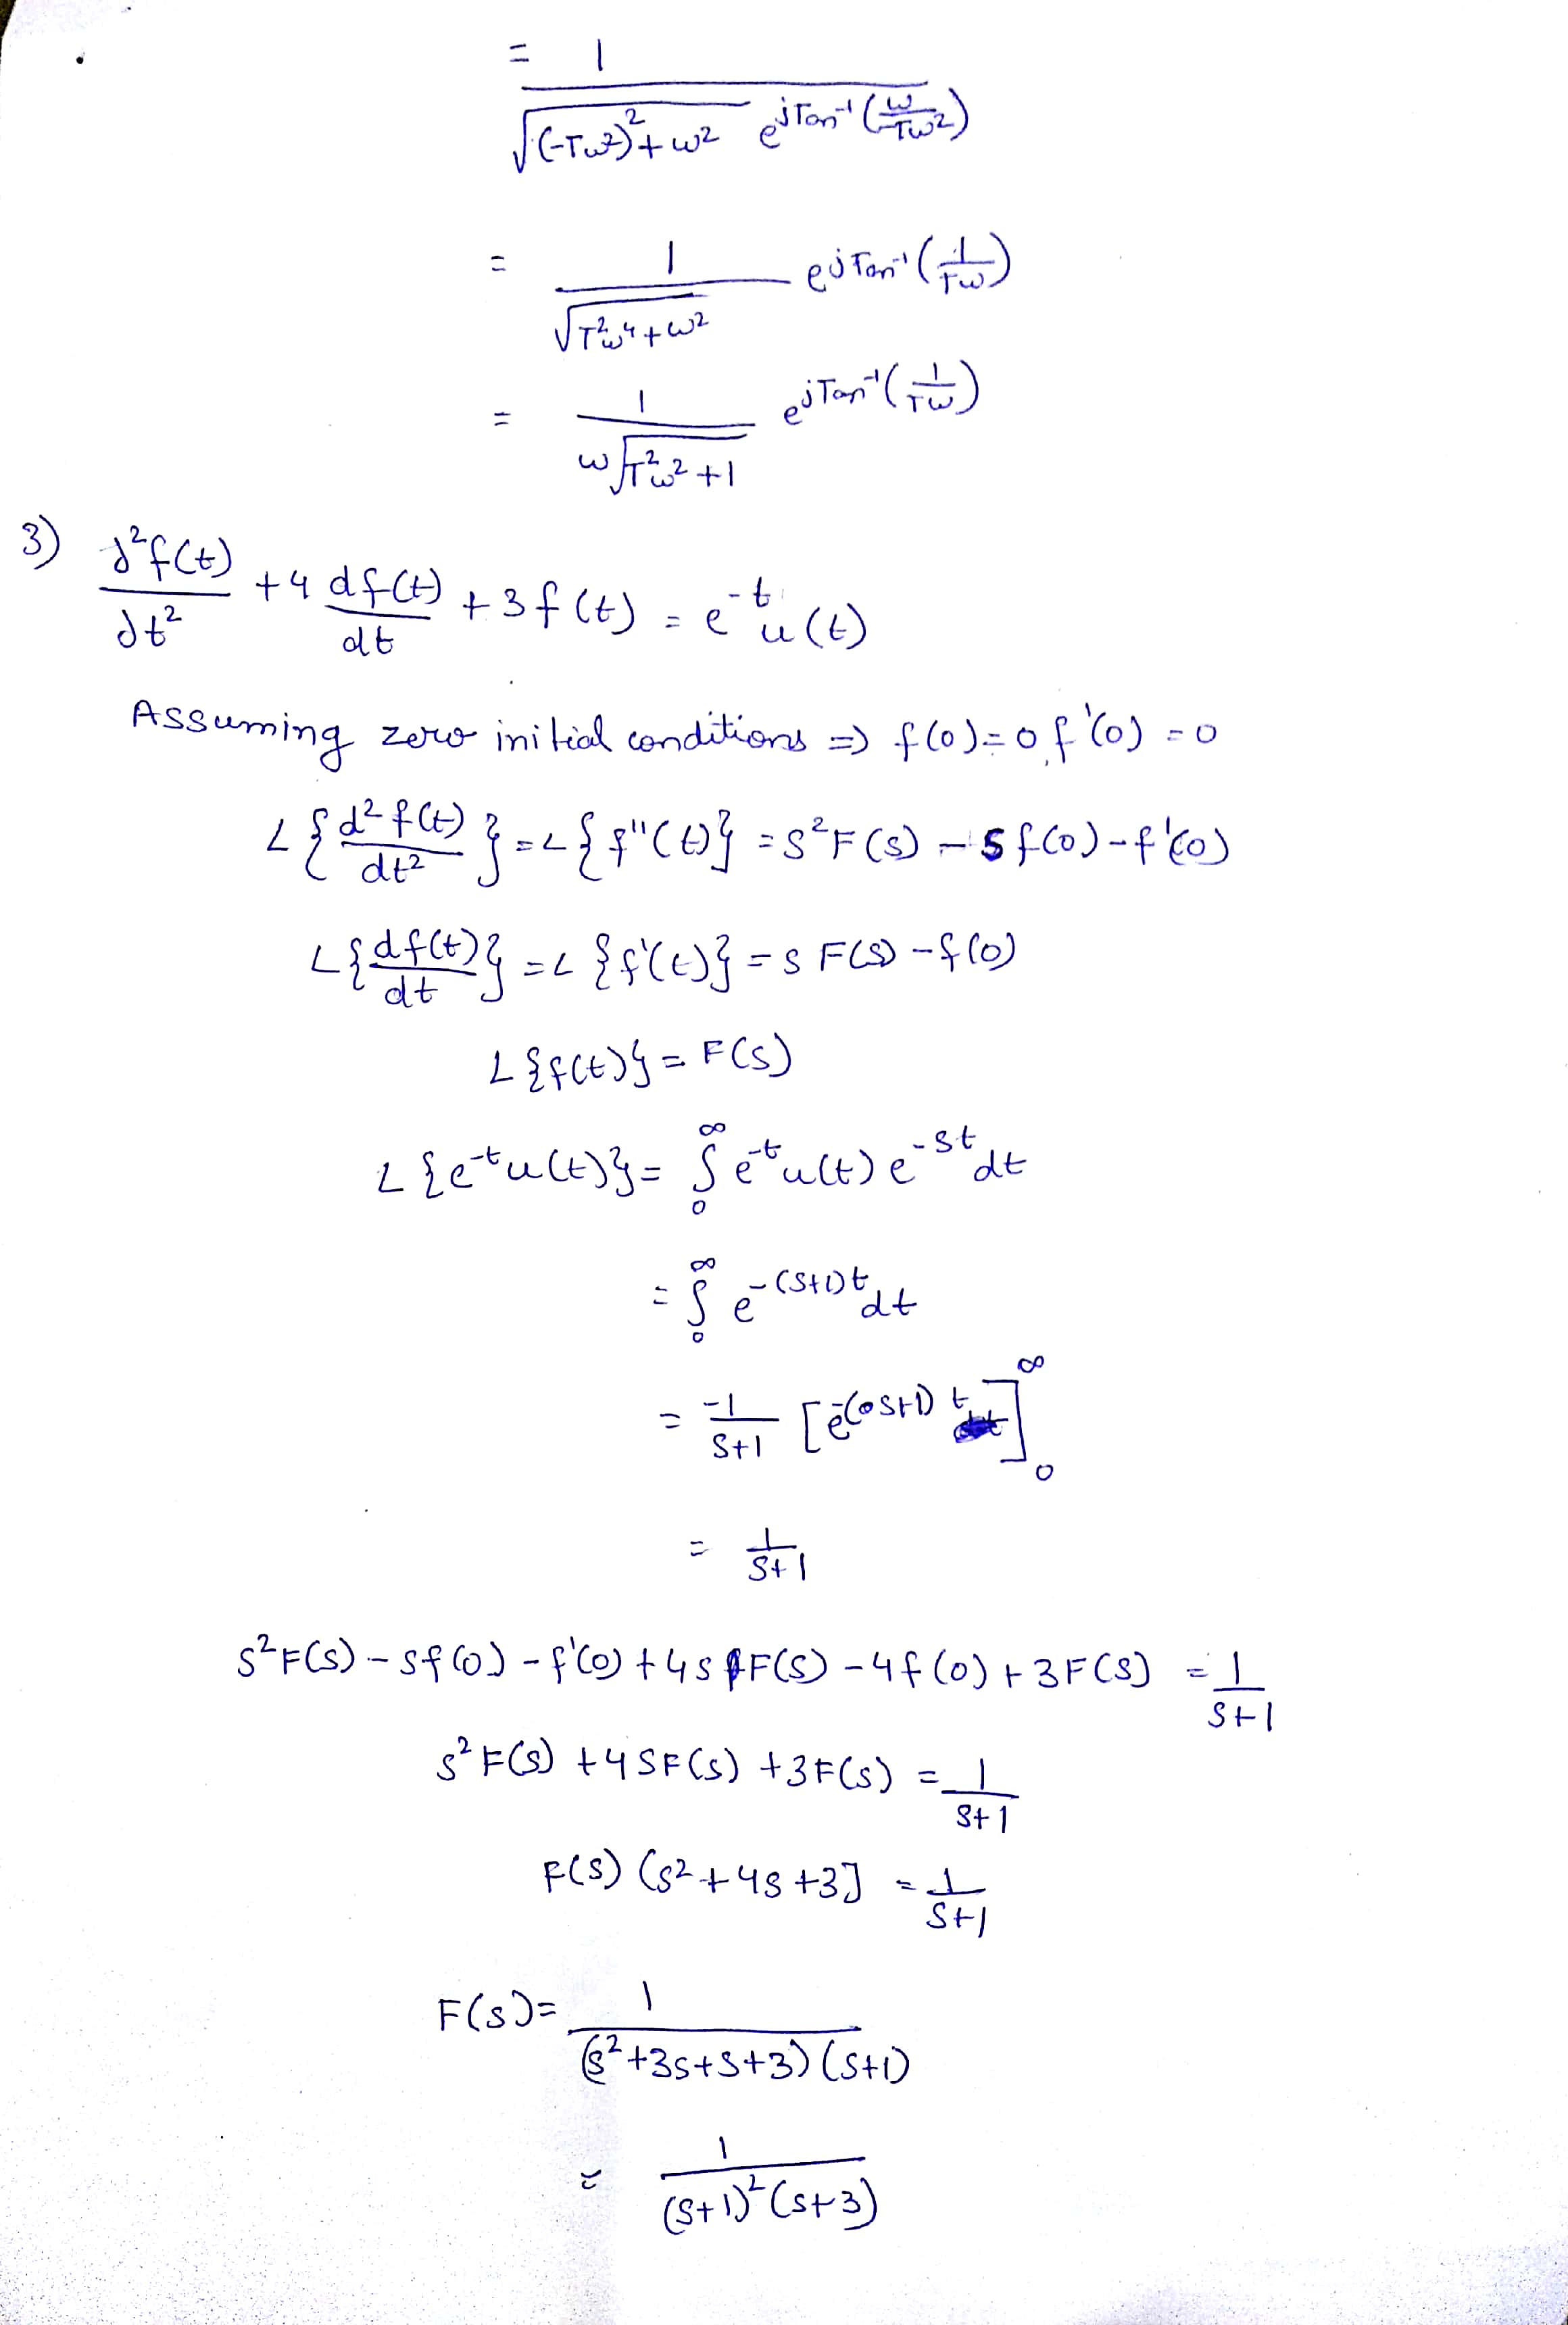 = 1 / √((-Tω²)² + ω²) e^(jTan⁻¹(ω/-Tω²))
= 1 / √(T²ω⁴ + ω²) e^(jTan⁻¹(1/Tω))
= 1 / (ω√(T²ω² + 1)) e^(jTan⁻¹(1/Tω))
3) d²f(t)/dt² + 4 df(t)/dt + 3f(t) = e^(-t) u(t)
Assuming zero initial conditions ⇒ f(0)=0, f'(0)=0
L{d²f(t)/dt²} = L{f''(t)} = S²F(S) - S f(0) - f'(0)
L{df(t)/dt} = L{f'(t)} = S F(S) - f(0)
L{f(t)} = F(S)
L{e^(-t) u(t)} = ∫₀^∞ e^(-t) u(t) e^(-St) dt
= ∫₀^∞ e^(-(S+1)t) dt
= -1/(S+1) [e^(-(S+1)t)]₀^∞
= 1/(S+1)
S²F(S) - Sf(0) - f'(0) + 4S F(S) - 4f(0) + 3F(S) = 1/(S+1)
S²F(S) + 4SF(S) + 3F(S) = 1/(S+1)
F(S) (S² + 4S + 3] = 1/(S+1)
F(S) = 1 / ((S² + 3S + S + 3)(S+1))
= 1 / ((S+1)²(S+3))